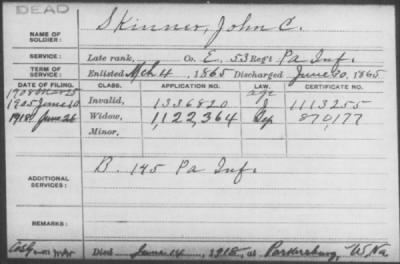 DEAD
NAME OF SOLDIER: Skinner, John C.
SERVICE: Late rank, Co. E, 53 Reg't Pa Inf.
TERM OF SERVICE: Enlisted Mch 4, 1865 Discharged June 30, 1865
DATE OF FILING. CLASS. APPLICATION NO. LAW. CERTIFICATE NO.
1908 Mar 25 age
1905 June 10 Invalid, 1336820 J 1113255
1918 June 26 Widow, 1,122,364 870,177
Minor,
ADDITIONAL SERVICES: B. 145 Pa Inf.
REMARKS:
Died June 14, 1918, at Parkersburg, W, Va